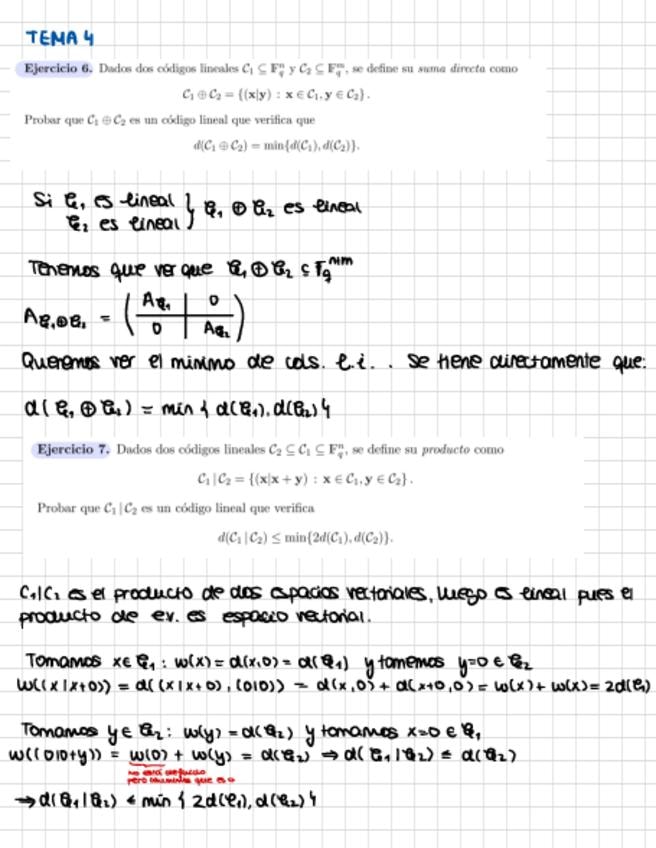 TEMA 4
Ejercicio 6. Dados dos códigos lineales C₁ ⊆ F_q^n y C₂ ⊆ F_q^m, se define su suma directa como
C₁ ⊕ C₂ = {(x|y) : x ∈ C₁, y ∈ C₂}.
Probar que C₁ ⊕ C₂ es un código lineal que verifica que
d(C₁ ⊕ C₂) = min{d(C₁), d(C₂)}.
Si C₁ es lineal
C₂ es lineal } C₁ ⊕ C₂ es lineal
Tenemos que ver que C₁ ⊕ C₂ ⊆ F_q^{n+m}
A_{C₁⊕C₂} = ( A_{C₁} | 0
0 | A_{C₂} )
Queremos ver el mínimo de cols. l.i. . Se tiene directamente que:
d(C₁ ⊕ C₂) = min { d(C₁), d(C₂) }
Ejercicio 7. Dados dos códigos lineales C₂ ⊆ C₁ ⊆ F_q^n, se define su producto como
C₁ | C₂ = {(x|x + y) : x ∈ C₁, y ∈ C₂}.
Probar que C₁ | C₂ es un código lineal que verifica
d(C₁ | C₂) ≤ min{2d(C₁), d(C₂)}.
C₁|C₂ es el producto de dos espacios vectoriales, luego es lineal pues el
producto de ev. es espacio vectorial.
Tomamos x ∈ C₁ : w(x) = d(x,0) = d(C₁) y tomemos y=0 ∈ C₂
w((x|x+0)) = d((x|x+0), (0|0)) = d(x,0) + d(x+0,0) = w(x) + w(x) = 2d(C₁)
Tomamos y ∈ C₂ : w(y) = d(C₂) y tomamos x=0 ∈ C₁
w((0|0+y)) = w(0) + w(y) = d(C₂) ⇒ d(C₁|C₂) ≤ d(C₂)
no está definido
pero que es 0
⇒ d(C₁|C₂) ≤ min { 2d(C₁), d(C₂) }